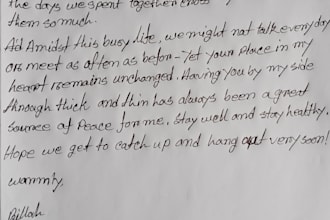 the days we spent together
them so much.
Amidst this busy life, we might not talk everyday
or meet as often as before - yet your place in my
heart remains unchanged. Having you by my side
through thick and thin has always been a great
source of Peace for me. Stay well and stay healthy.
Hope we get to catch up and hang out very soon!
warmly,
Billah